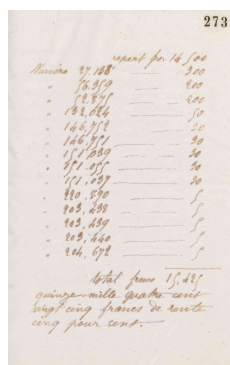 273
report frs 14,500
Numéro 27,188 300
" 56,959 200
" 52,875 200
" 132,024 50
" 146,752 30
" 146,751 30
" 151,039 30
" 151,055 30
" 151,037 30
" 220,890 5
" 203,438 5
" 203,439 5
" 203,440 5
" 204,672 5
total francs 15,425
quinze-mille quatre cent
vingt cinq francs de rente
cinq pour cent.